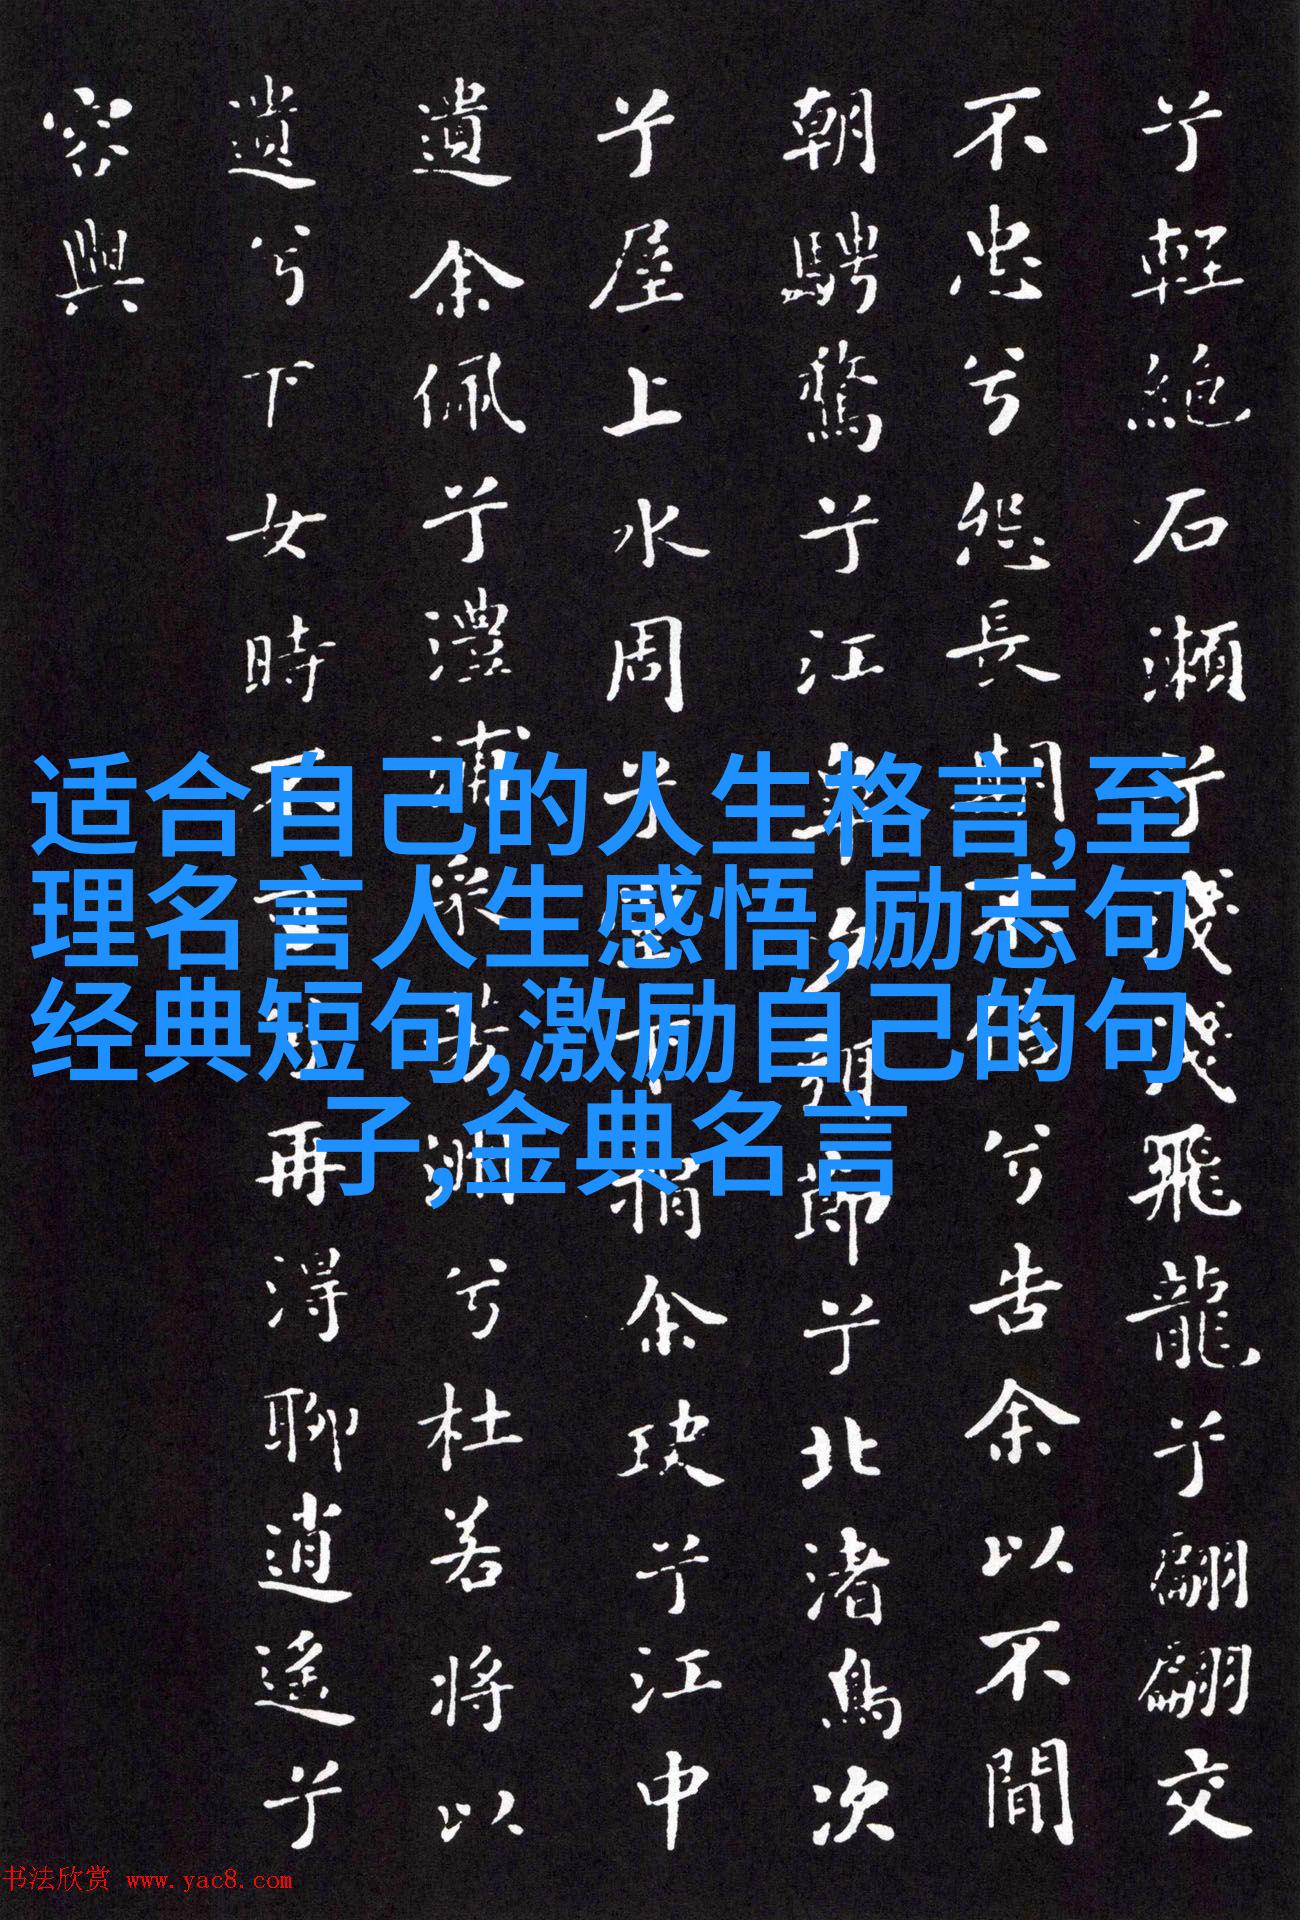 兮輕絕石瀨兮淺淺飛龍兮翩翩交
不忠兮怨長期不信兮告余以不閒
朝騁騖兮江皋夕弭節兮北渚鳥次
兮屋上水周兮堂下捐余玦兮江中
遺余佩兮澧浦采芳洲兮杜若將以
遺兮下女時不可兮再得聊逍遙兮
容與
适合自己的人生格言,至
理名言人生感悟,励志句
经典短句,激励自己的句
子,金典名言
书法欣赏 www.yac8.com